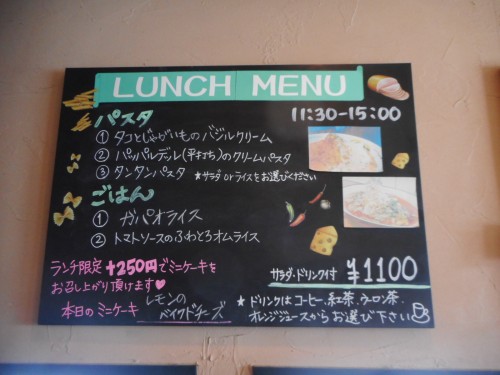 LUNCH MENU
11:30-15:00
パスタ
① タコとじゃがいものバジルクリーム
② パッパルデッル(平打ち)のクリームパスタ
③ タンタンパスタ ★サラダorライスをお選びください
ごはん
① ガパオライス
② トマトソースのふわとろオムライス
ランチ限定 +250円でミニケーキを
お召し上がり頂けます♥
本日のミニケーキ レモンのベイクドチーズ
サラダ・ドリンク付 ¥1100
★ドリンクはコーヒー、紅茶、ウーロン茶、
オレンジジュースからお選び下さい